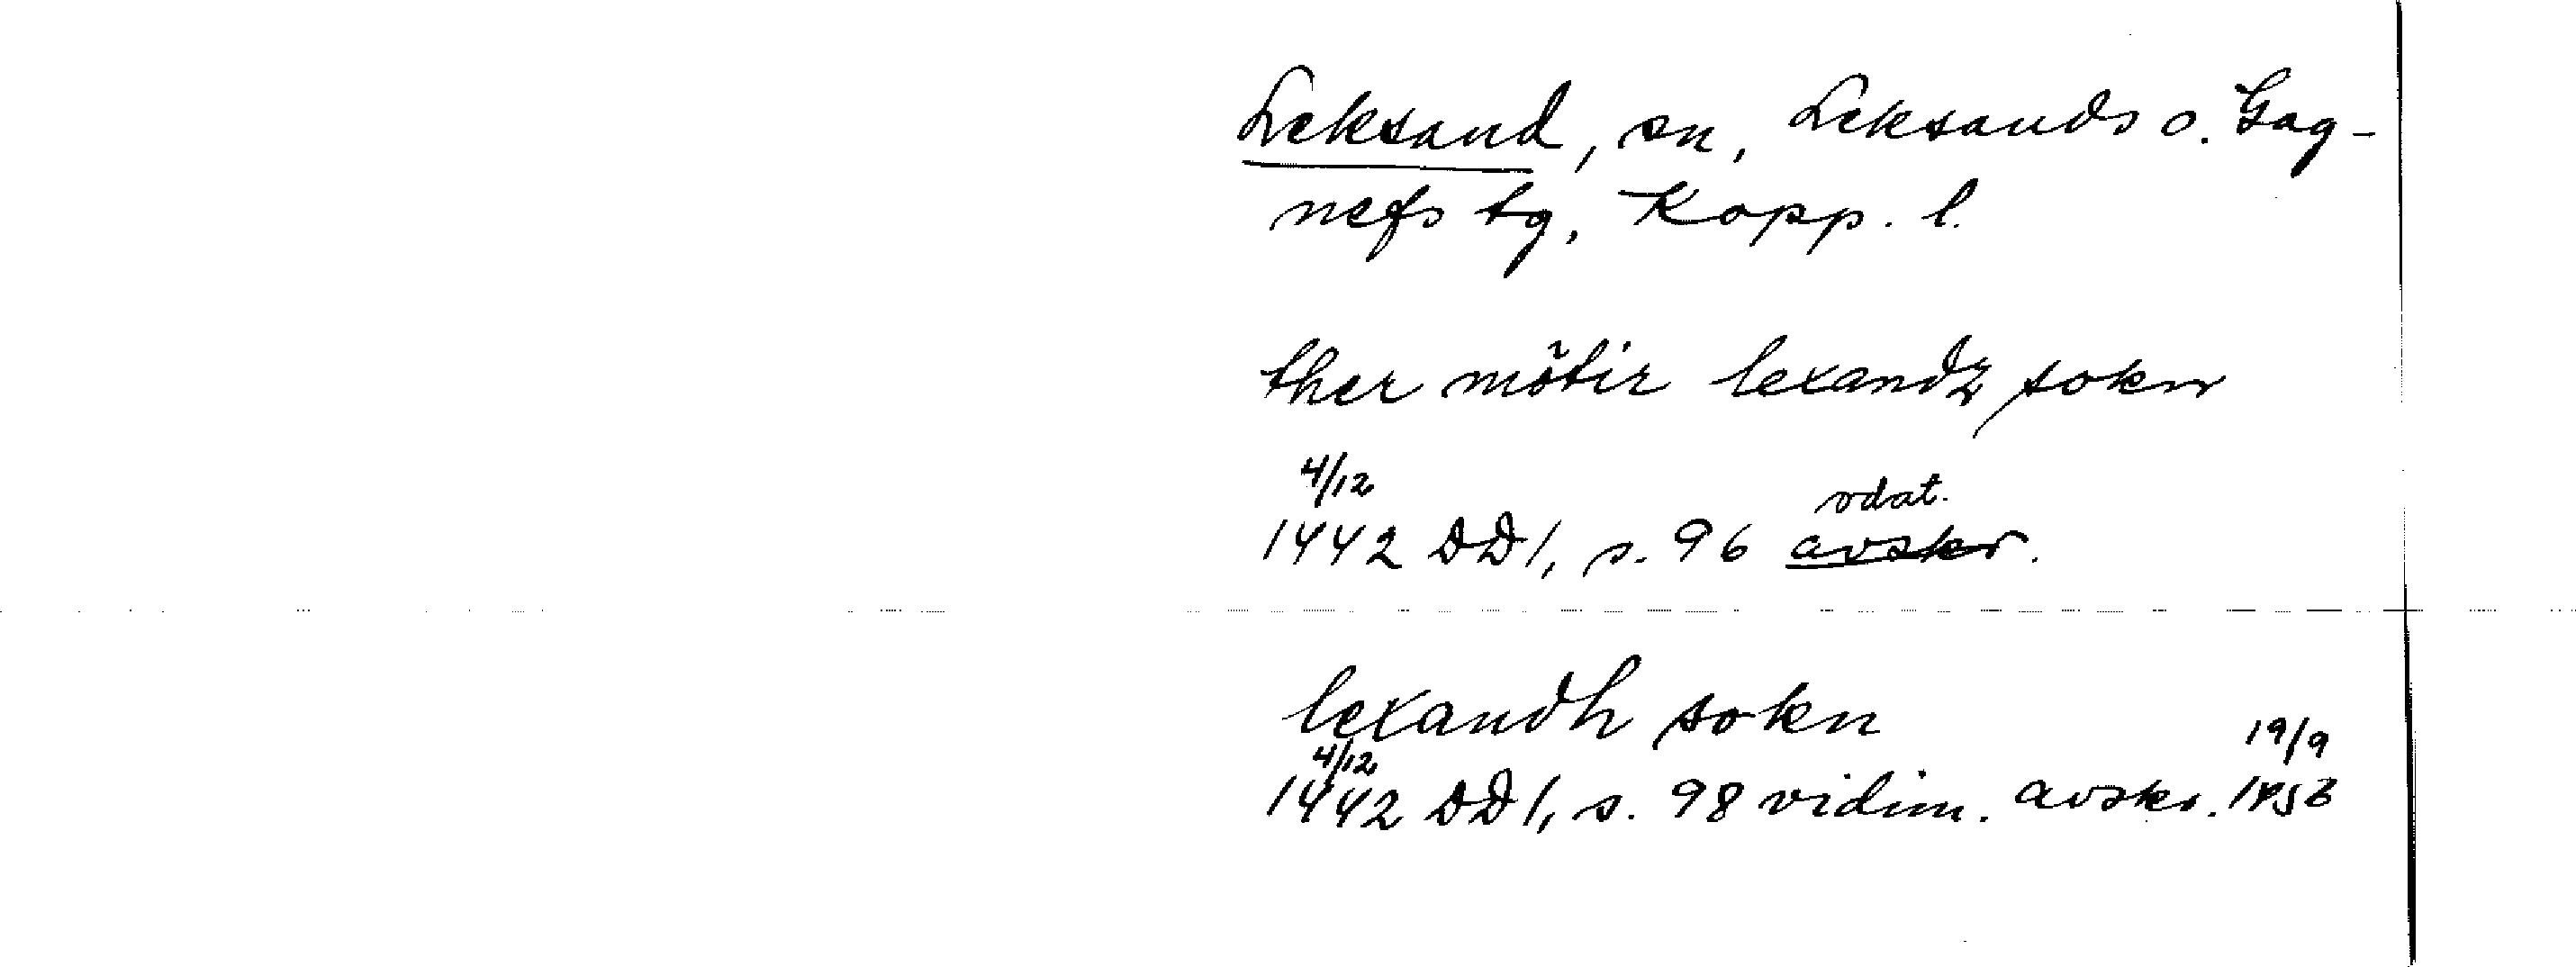 Leksand, sn, Leksands o. Gag-
nefs tg, Kopp. l.
ther mötir lexandz sokn
4/12
odat.
1442 DD 1, s. 96 avskr.
lexandh sokn
4/12
19/9
1442 DD 1, s. 98 vidim. avskr. 1456